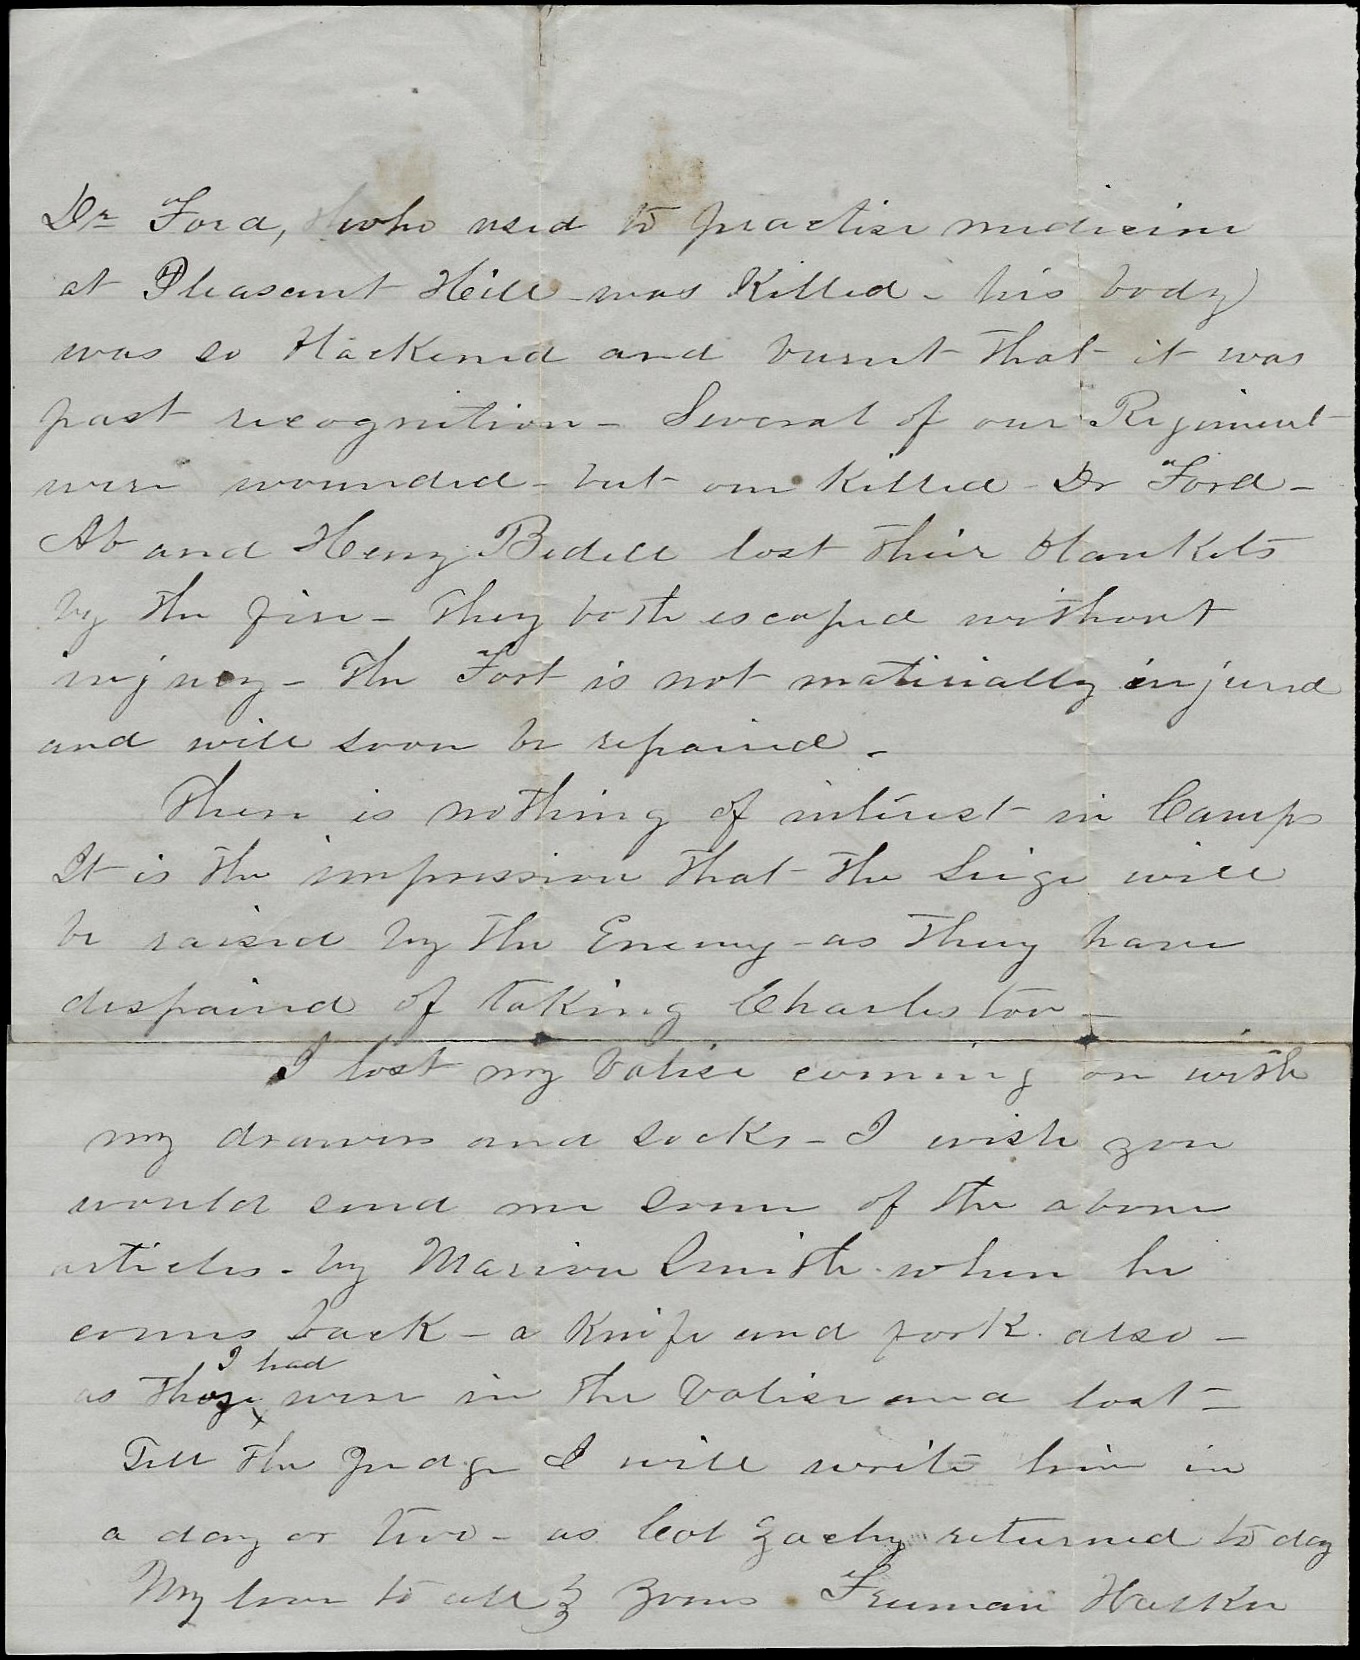 Dr Ford, who used to practise medicine
at Pleasant Hill - was Killed - his body
was so blackened and burnt that it was
past recognition - Several of our Regiment
were wounded - but one Killed - Dr Ford -
Ab and Henry Bedell lost their blankets
by the fire - They both escaped without
injury - The Fort is not materially injured
and will soon be repaired -
There is nothing of interest in Camp
It is the impression that the Seige will
be raised by the Enemy - as they have
despaired of taking Charleston -
I lost my Valise coming on with
my drawers and socks - I wish you
would send me some of the above
articles - by Marion Smith - when he
comes back - a Knife and fork also -
I had
as those were in the Valise and lost -
Tell the Judge I will write him in
a day or two - as Col Zachy returned to day
My love to all Yours Freeman